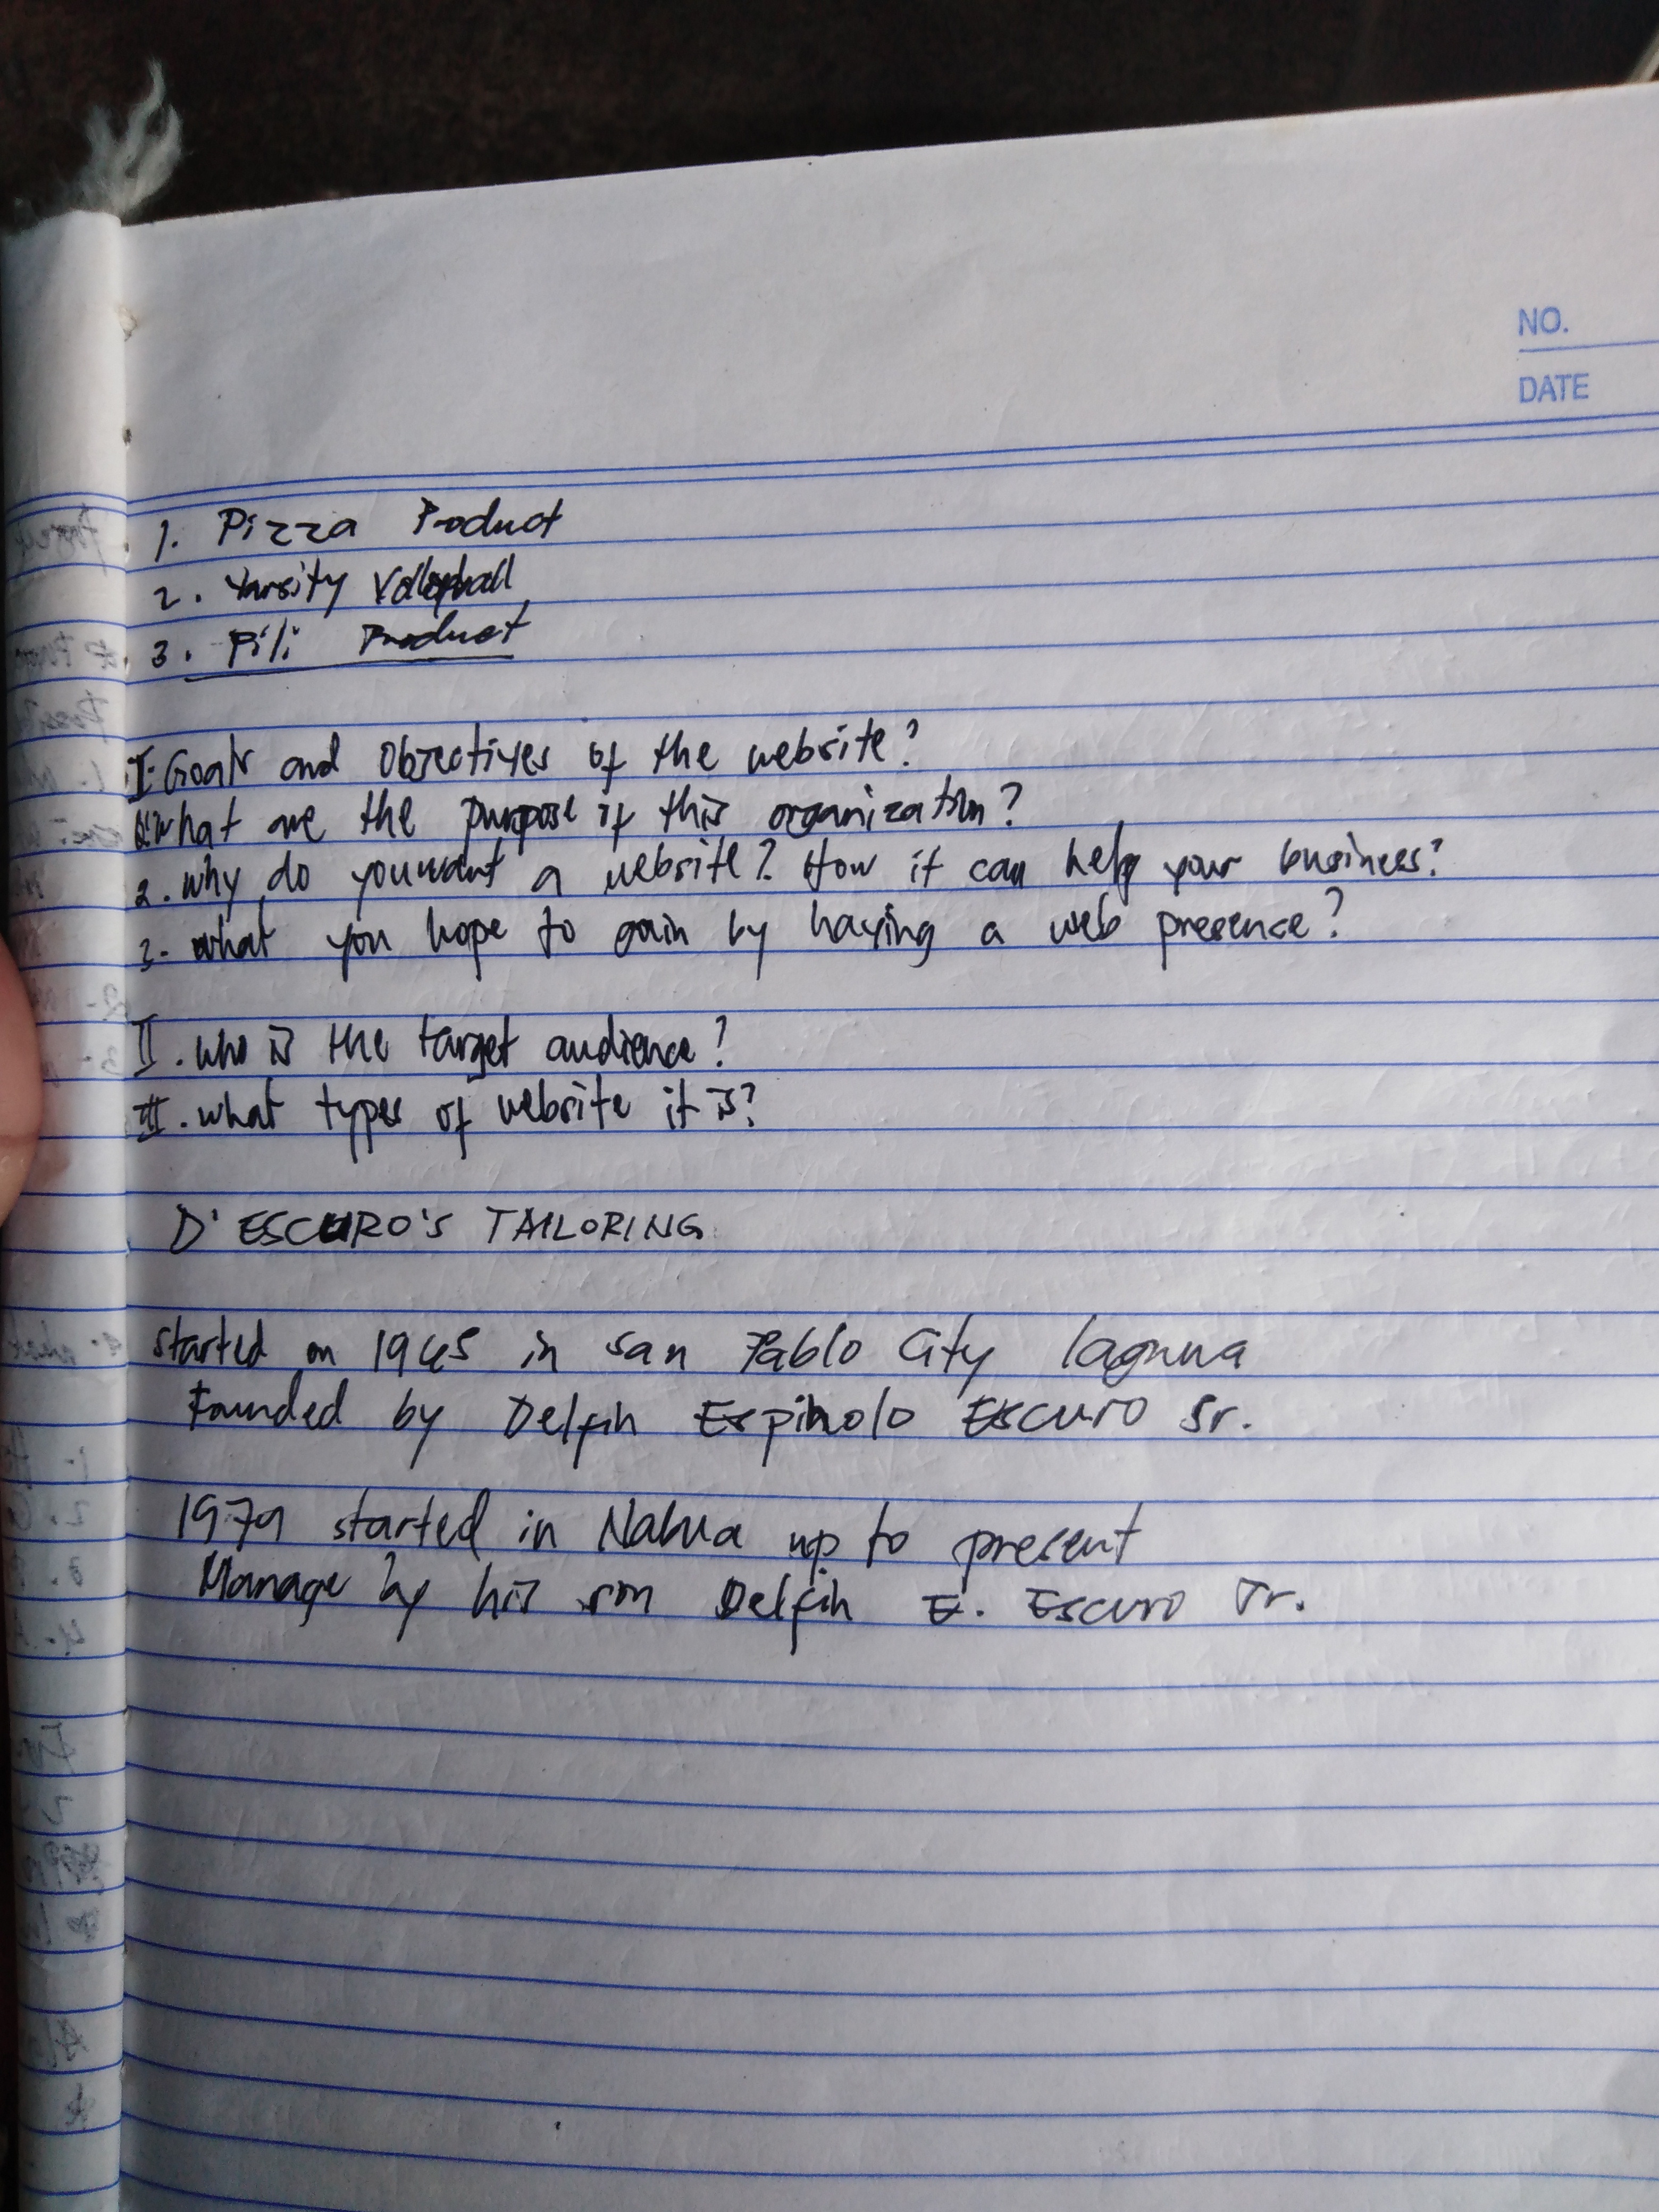 NO.
DATE
1. Pizza Product
2. Varsity Volleyball
3. Pili Product
I. Goals and Objectives of the website?
1. What are the purpose of this organization?
2. Why do you want a website? How it can help your business?
3. What you hope to gain by having a web presence?
II. who is the target audience?
III. what types of website it is?
D'ESCURO'S TAILORING
started on 1945 in San Pablo City laguna
Founded by Delfin Espinolo Escuro Sr.
1979 started in Nabua up to present
Manage by his son Delfin E. Escuro Jr.